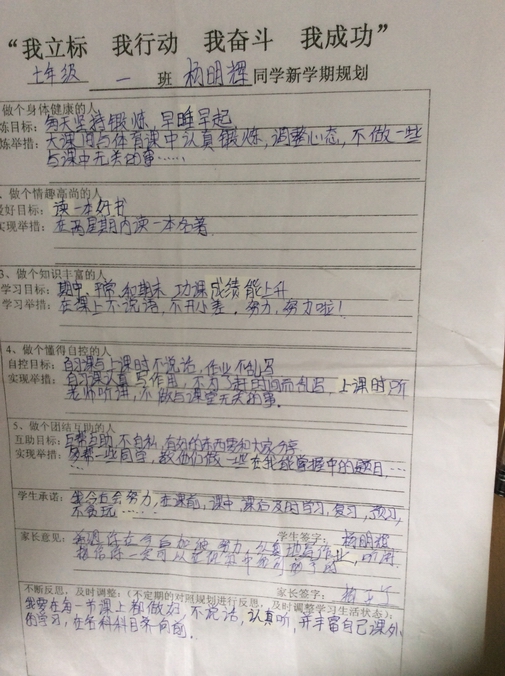 “我立标 我行动 我奋斗 我成功”
七年级 一 班 杨明辉 同学新学期规划
做个身体健康的人
炼目标：每天坚持锻炼，早睡早起
炼举措：大课间与体育课中认真锻炼，调整心态，不做一些
与课中无关的事……
、做个情趣高尚的人
爱好目标：读一本好书
实现举措：在两星期内读一本名著
3、做个知识丰富的人
学习目标：期中、平常和期末 功课成绩能上升
学习举措：在课上不说话，不开小差，努力，努力啦！
4、做个懂得自控的人
自控目标：自习课与上课时不说话，作业不乱写
实现举措：自习课认真写作用，不为了赶时间而乱写，上课时
老师听讲，不做与课堂无关的事.
5、做个团结互助的人
互助目标：互帮互助，不自私，有好的东西要和大家分享
实现举措：多帮一些同学，教他们做一些
学生承诺：我今后会努力，在课前，课中，课后及时学习，复习，预习，
不贪玩……
学生签字：杨明辉
家长意见：
家长签字：
不断反思，及时调整：（不定期的对照规划进行反思，及时调整学习生活状态）：
我要在每一节课上都做好 不说话，认真听，并丰富自己课外
的学习，在各科科目齐向前.